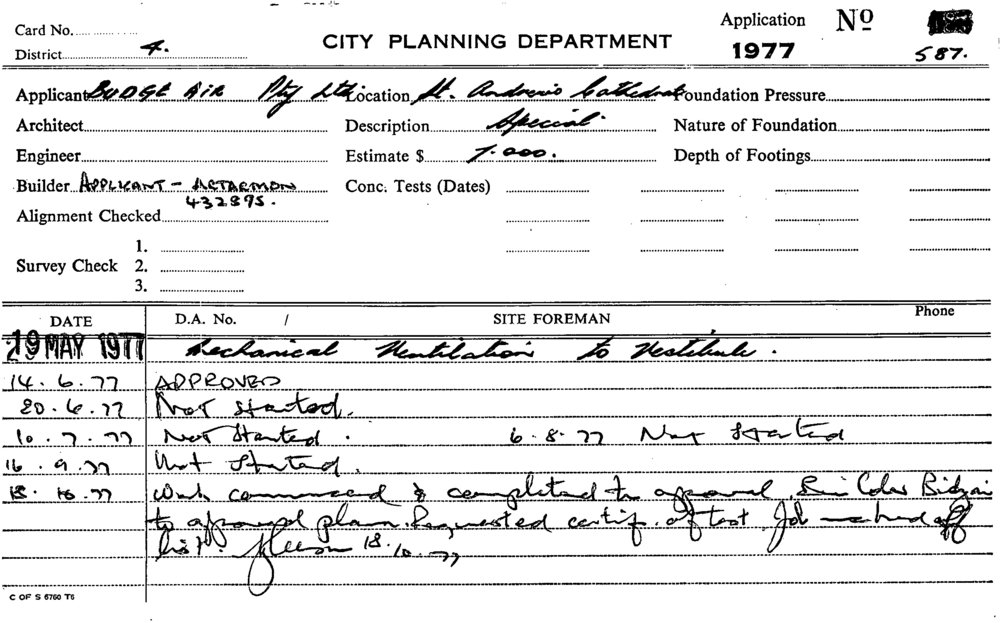 Card No.
Application No
District 4. CITY PLANNING DEPARTMENT 1977 587.
Applicant BUDGE AIR Pty Ltd Location St. Andrew's Cathedral Foundation Pressure
Architect Description Special. Nature of Foundation
Engineer Estimate $ 7.000. Depth of Footings
Builder APPLICANT - ARTARMON Conc. Tests (Dates)
432895.
Alignment Checked
1.
Survey Check 2.
3.
DATE D.A. No. / SITE FOREMAN Phone
19 MAY 1977 Mechanical Ventilation to Vestibule.
14.6.77 APPROVED
20.6.77 Not started.
10.7.77 Not Started. 6.8.77 Not Started
16.9.77 Not Started.
18.10.77 Work commenced & completed to approval
to approved plans. Requested certif. of test. Job marked off
list. 18.10.77
C OF S 6760 T6